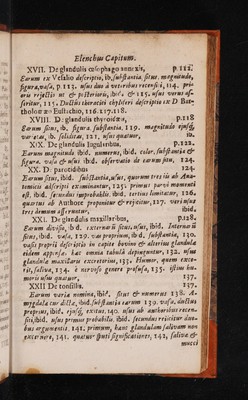 Elenchus Capitum.
XVII. De glandulis œsophago annexis, p.112.
Earum ex Vesalio descriptio, ib. substantia, situs, magnitudo,
figura, vasa, p.113. usus duo à veteribus recensiti, 114. pri-
oris rejectio ut & posterioris, ibid. & 115. usus verus af-
seritur, 115. Ductus thoracici chyliferi descriptio ex D. Bar-
tholino & Eustachio, 116.117.118.
XVIII. D: glandulis thyroideis, p.118
Earum situs, ib. figura, substantia, 119. magnitudo ejusq́;
varietas, ib. soliditas, 121. usus quatuor, ib.
XIX. De glandulis Jugularibus, p.122.
Earum magnitudo ibid. numerus, ibid. color, substantia &
figura. vasa & usus ibid. observatio de earum 124.
XX. D: parotidibus 124.
Earum situs, ibid. substantia, usus, quorum tres ib. ab Ana-
tomicis adscripti examinantur, 125. primus parvi momenti
est, ibid. secundus improbabilis ibid. tertius limitatur, 126.
quartus ab Authore proponitur & rejicitur, 127. veri usus
tres demum asseruntur, ibid.
XXI. De glandulis maxillaribus, p.128.
Earum divisio, ib. externarũ situs, usus, ibid. Internarũ
situs, ibid. vasa, 129. vas proprium, ib. substantia, 130.
vasis proprii descriptio in capite bovino & alterius glandula
eidem appensæ. hac omnia tabulâ depinguntur, 132. usus
glandulæ maxillaris excretorius, 133. Humor, quem excer-
nit, saliva, 134. è nervoso genere profusa, 135. istius hu-
moris usus quatuor, 137.
XXII De tonsillis. 137.
Earum varia nomina, ibid. situs & numerus 138. A-
mygdala cur dictæ, ibid. substantia earum 139. vasa, ductus
proprius, ibid. ejusq́; exitus, 140. usus ab authoribus recen-
siti, ibid. usus primus probabilis, ibid. secundus rejicitur duo-
bus argumentis, 141. primum, hanc glandulam salivam non
excernere, 141. quatuor sputi significationes, 142, saliva &
mucci